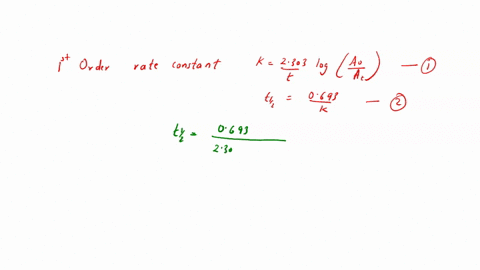 1st Order rate constant K = 2.303/t log (A0/At) — ①
t½ = 0.693/K — ②
t½ = 0.693/2.30